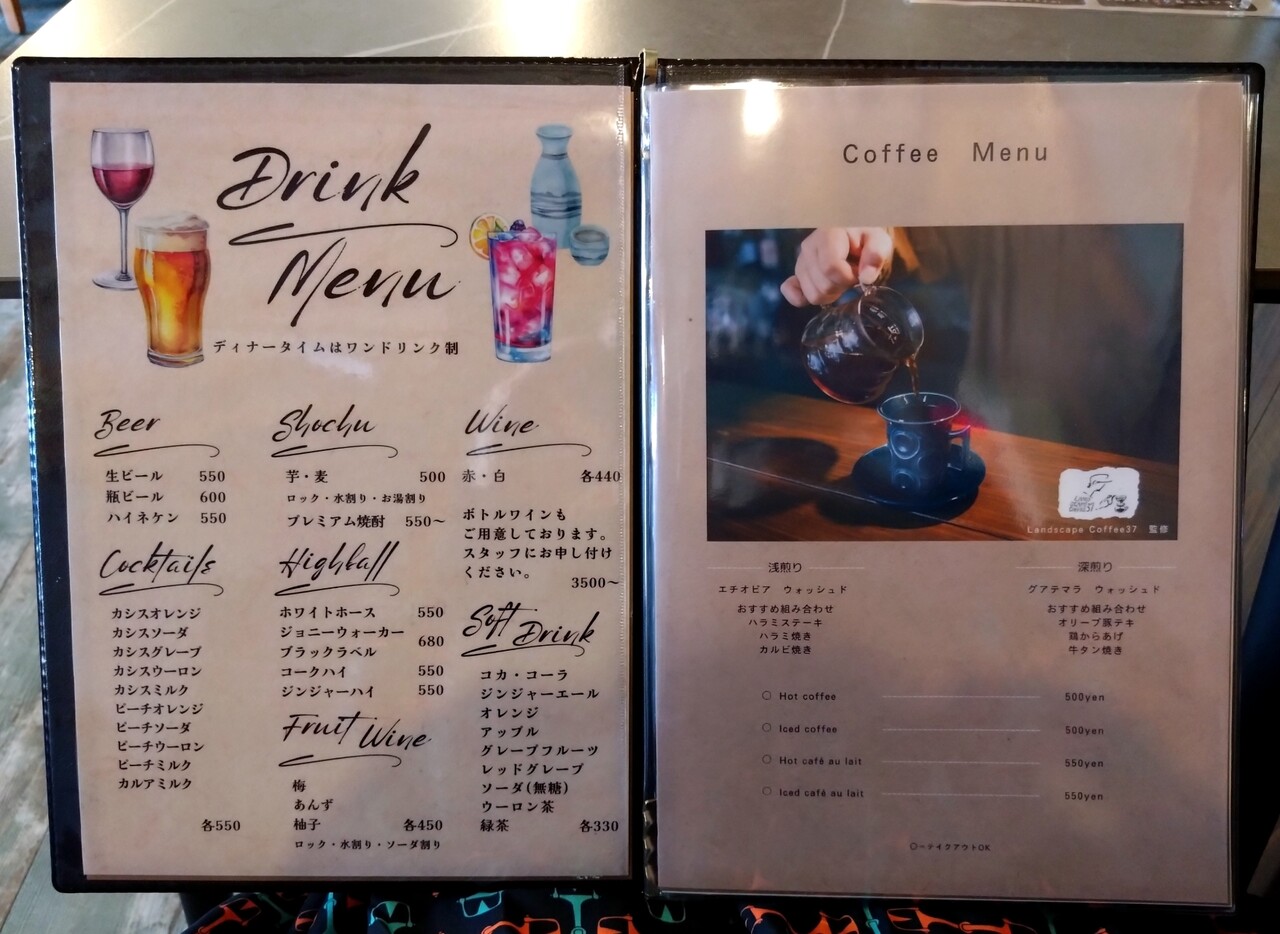 Drink
Menu
ディナータイムはワンドリンク制
Beer
生ビール 550
瓶ビール 600
ハイネケン 550
Cocktails
カシスオレンジ
カシスソーダ
カシスグレープ
カシスウーロン
カシスミルク
ピーチオレンジ
ピーチソーダ
ピーチウーロン
ピーチミルク
カルアミルク
各550
Shochu
芋・麦 500
ロック・水割り・お湯割り
プレミアム焼酎 550〜
Highball
ホワイトホース 550
ジョニーウォーカー
ブラックラベル 680
コークハイ 550
ジンジャーハイ 550
Fruit Wine
梅
あんず
柚子 各450
ロック・水割り・ソーダ割り
Wine
赤・白 各440
ボトルワインも
ご用意しております。
スタッフにお申し付け
ください。
3500〜
Soft Drink
コカ・コーラ
ジンジャーエール
オレンジ
アップル
グレープフルーツ
レッドグレープ
ソーダ(無糖)
ウーロン茶
緑茶 各330
Coffee Menu
Landscape Coffee37 監修
浅煎り
エチオピア ウォッシュド
おすすめ組み合わせ
ハラミステーキ
ハラミ焼き
カルビ焼き
深煎り
グアテマラ ウォッシュド
おすすめ組み合わせ
オリーブ豚テキ
鶏からあげ
牛タン焼き
〇 Hot coffee 500yen
〇 Iced coffee 500yen
〇 Hot café au lait 550yen
〇 Iced café au lait 550yen
〇ーテイクアウトOK